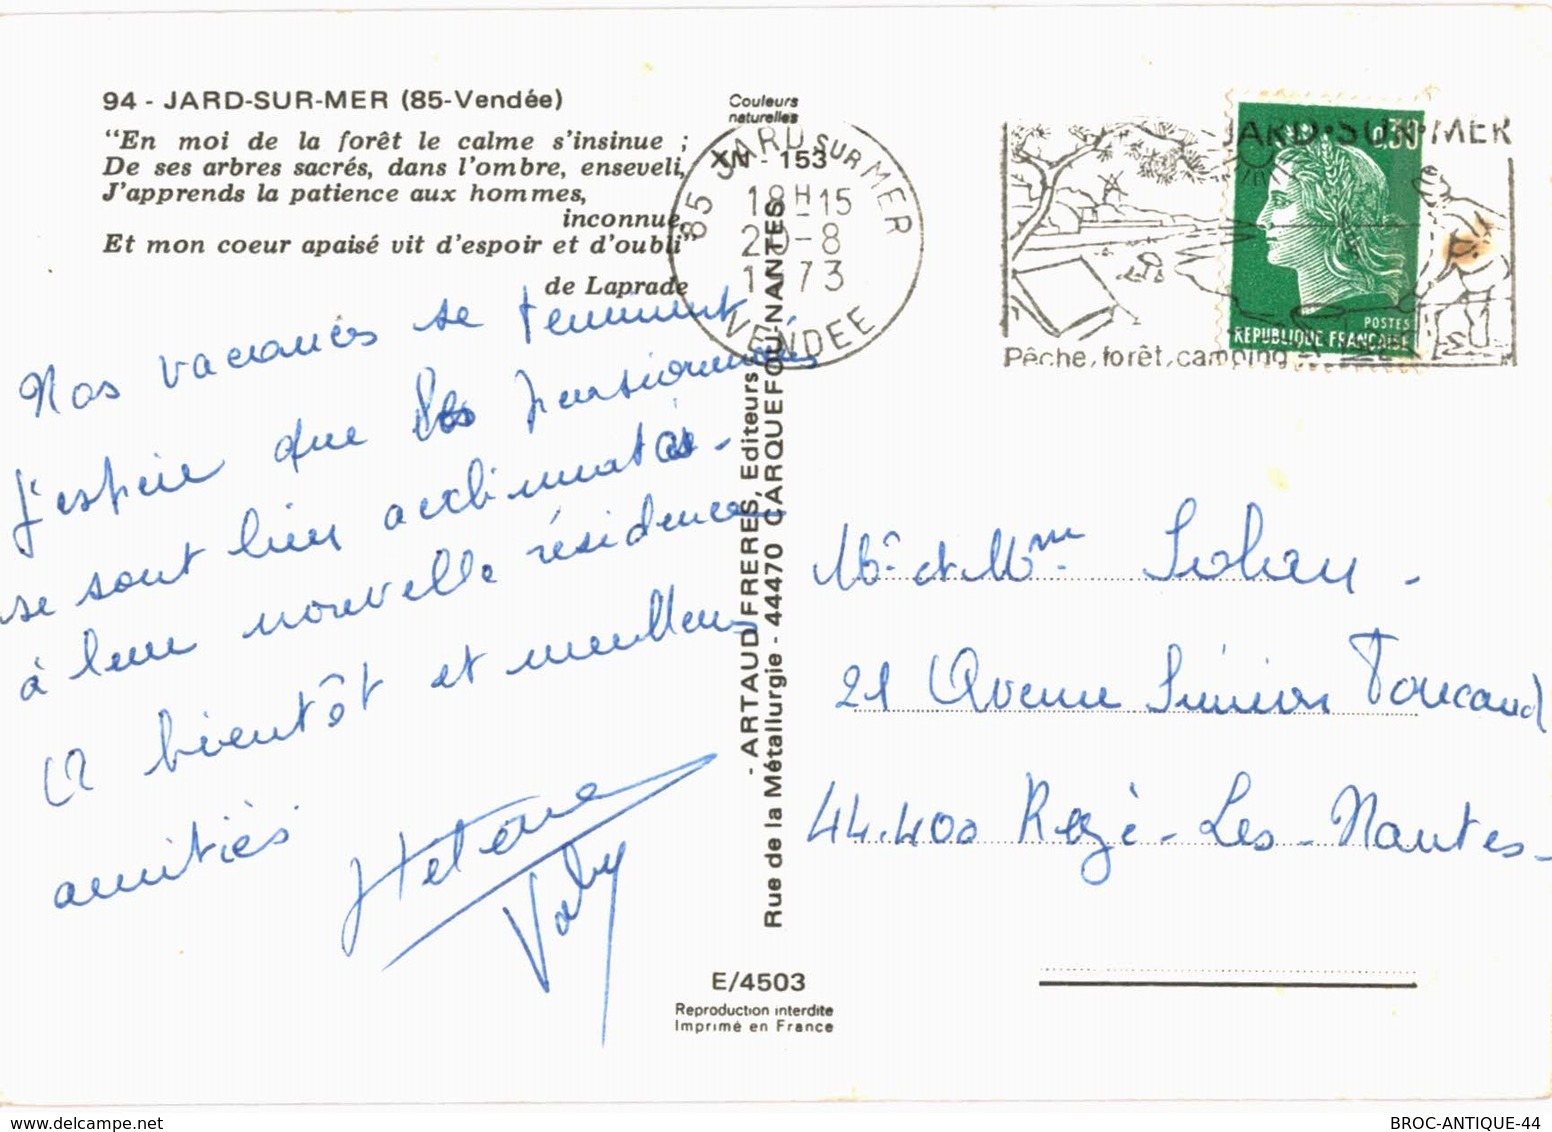 94 - JARD-SUR-MER (85-Vendée)
"En moi de la forêt le calme s'insinue ;
De ses arbres sacrés, dans l'ombre, enseveli,
J'apprends la patience aux hommes,
inconnue,
Et mon coeur apaisé vit d'espoir et d'oubli"
de Laprade
Nos vacances se terminent
j'espère que les pensionnaires
se sont bien acclimatés
à leur nouvelle résidence
A bientôt et meilleurs
amitiés
Couleurs
naturelles
XN - 153
85 JARD SUR MER
18H15
20-8
1973
VENDEE
- ARTAUD FRERES, Editeurs
Rue de la Métallurgie - 44470 CARQUEFOU-NANTES
E/4503
Reproduction interdite
Imprimé en France
JARD-SUR-MER
Pêche, forêt, camping
0,30
POSTES
REPUBLIQUE FRANÇAISE
Mr et Mme
21 Avenue
44.400 Rezé-Les-Nantes-
BROC-ANTIQUE-44